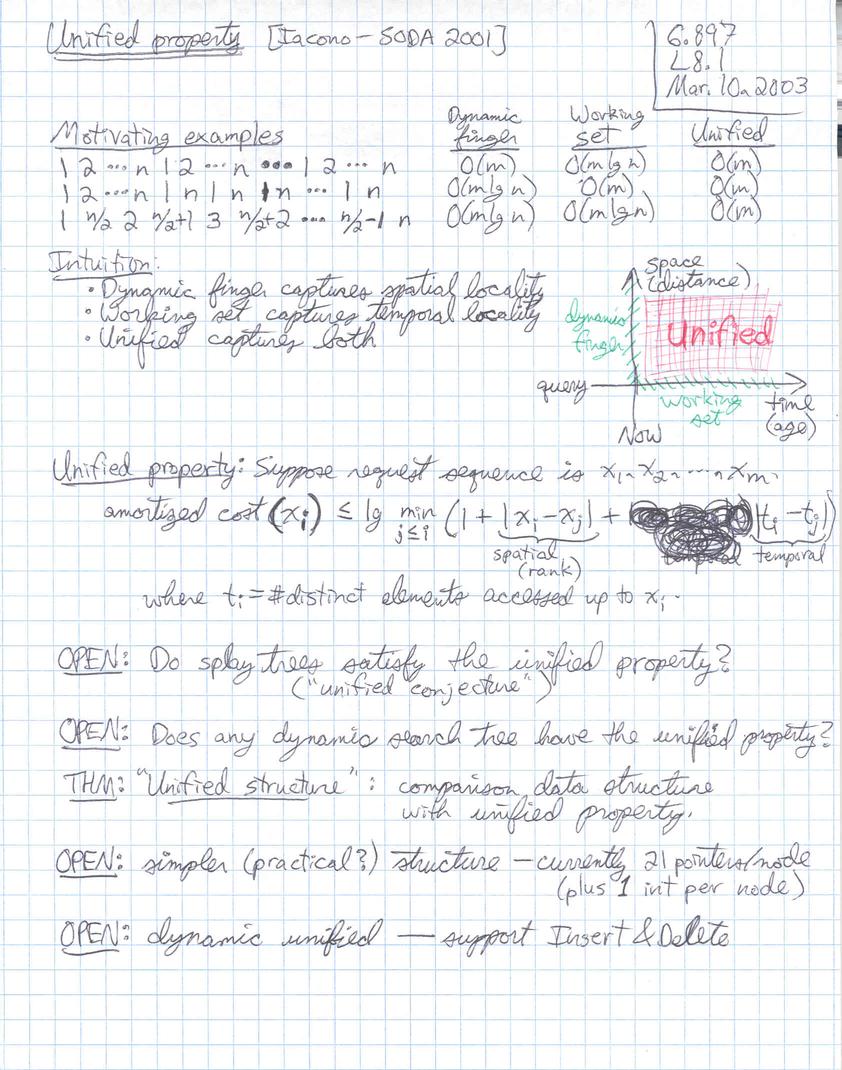 Unified property [Iacono – SODA 2001]
6.897
L8.1
Mar. 10, 2003
Motivating examples
Dynamic finger
Working set
Unified
1 2 ... n 1 2 ... n ... 1 2 ... n O(m) O(m lg n) O(m)
1 2 ... n 1 n 1 n 1 n ... 1 n O(m lg n) O(m) O(m)
1 n/2 2 n/2+1 3 n/2+2 ... n/2-1 n O(m lg n) O(m lg n) O(m)
Intuition:
• Dynamic finger captures spatial locality
• Working set captures temporal locality
• Unified captures both
space
(distance)
dynamic
finger
Unified
query
working
set
time
(age)
Now
Unified property: Suppose request sequence is x1, x2, ..., xm.
amortized cost (xi) ≤ lg min j≤i (1 + |xi – xj| + |ti – tj|)
spatial
(rank)
temporal
where ti = # distinct elements accessed up to xi.
OPEN: Do splay trees satisfy the unified property?
("unified conjecture")
OPEN: Does any dynamic search tree have the unified property?
THM: "Unified structure": comparison data structure
with unified property.
OPEN: simpler (practical?) structure – currently 21 pointers/node
(plus 1 int per node)
OPEN: dynamic unified — support Insert & Delete